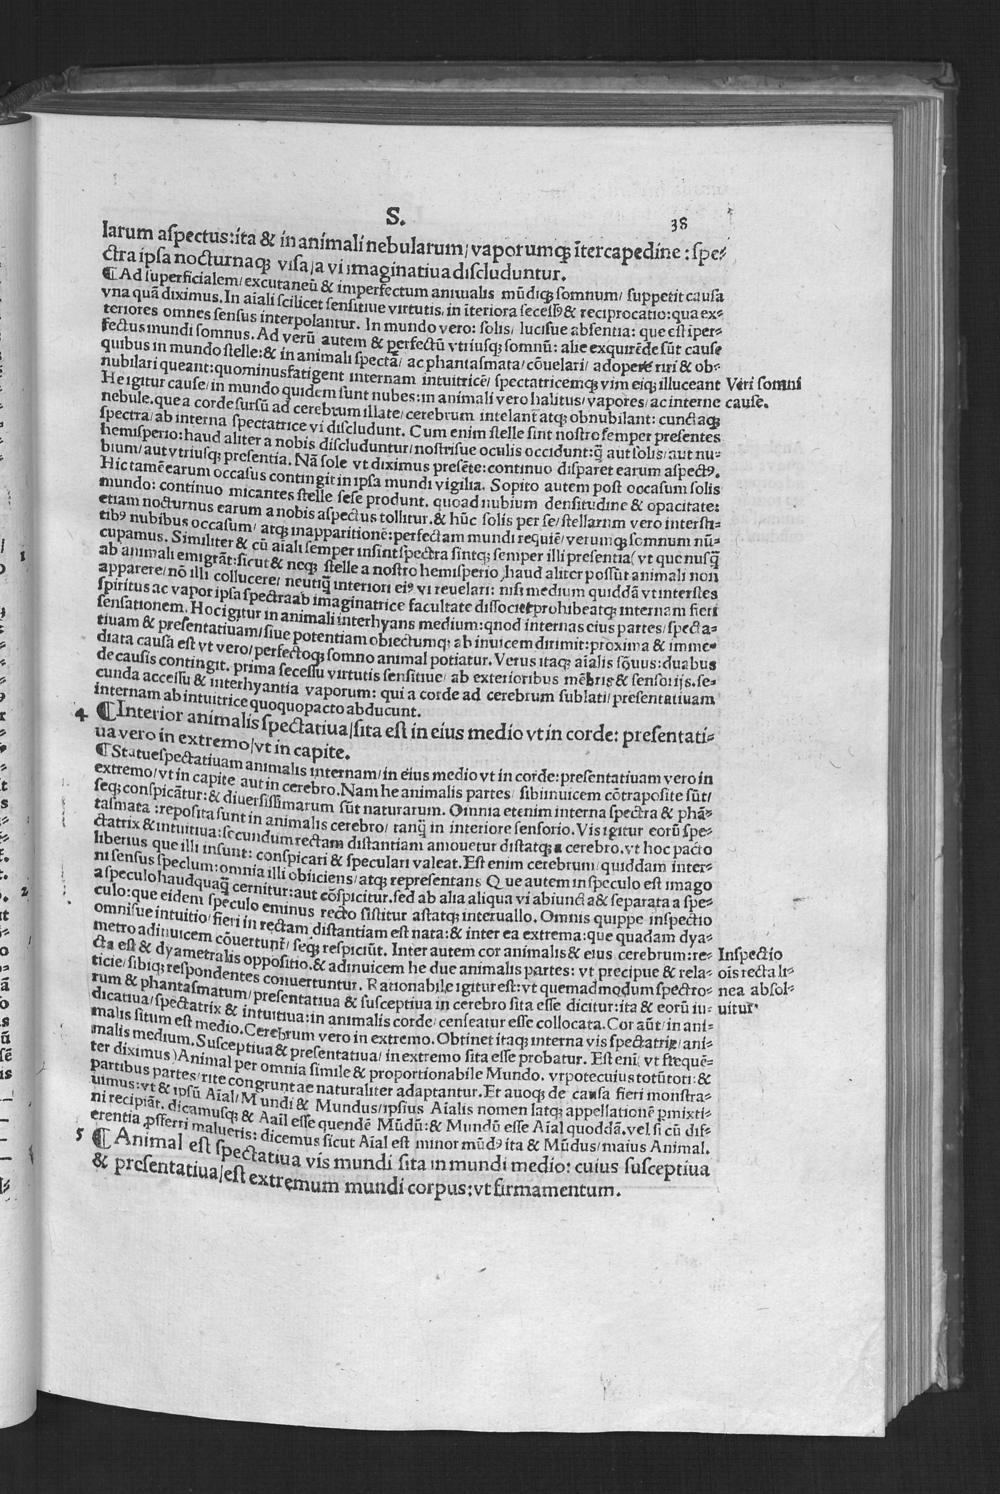 S.
38
larum aſpectus:ita & in animali nebularum/vaporumqȝ ĩtercapedine : ſpe⸗
ctra ipſa nocturnaqȝ viſa/a vi imaginatiua diſcluduntur.
¶Ad ſuperficialem/excutaneũ & imperfectum animalis mũdiqȝ ſomnum/ ſuppetit cauſa
vna quã diximus. In aiali ſcilicet ſenſitiue virtutis, in ĩteriora ſeceſſꝰ & reciprocatio: qua ex⸗
teriores omnes ſenſus interpolantur. In mundo vero: ſolis/ luciſue abſentia: que eſt iper⸗
fectus mundi ſomnus. Ad verũ autem & perfectũ vtriuſqȝ ſomnũ: alie exquirẽde ſũt cauſe
quibus in mundo ſtelle:& in animali ſpectã/ ac phantaſmata/cõuelari/ adoperiri & ob⸗
nubilari queant:quominus fatigent internam intuitricẽ/ ſpectatricemqȝ vim eiqȝ illuceant
Veri ſomni
He igitur cauſe/in mundo quidem ſunt nubes:in animali vero halitus/vapores/ac interne
cauſe.
nebule.que a corde ſurſũ ad cerebrum illate/cerebrum intelant atqȝ obnubilant: cunctaqȝ
ſpectra/ab interna ſpectatrice vi diſcludunt. Cum enim ſtelle ſint noſtro ſemper preſentes
hemiſperio:haud aliter a nobis diſcluduntur/noſtriſue oculis occidunt:q̃ aut ſolis/aut nu⸗
bium/aut vtriuſqȝ preſentia. Nã ſole vt diximus preſẽte:continuo diſparet earum aſpectꝰ.
Hic tamẽ earum occaſus contingit in ipſa mundi vigilia. Sopito autem poſt occaſum ſolis
mundo: continuo micantes ſtelle ſeſe produnt. quoad nubium denſitudine & opacitate:
etiam nocturnus earum a nobis aſpectus tollitur.& hũc ſolis per ſe/ſtellarum vero interſti⸗
tibꝰ nubibus occaſum/ atqȝ inapparitionẽ: perfectam mundi requiẽ/verumqȝ ſomnum nũ⸗
cupamus. Similiter & cũ aĩali ſemper inſint ſpectra ſintqȝ ſemper illi preſentia( vt que nuſq̃
ab animali emigrãt:ſicut & neqȝ ſtelle a noſtro hemiſperio)haud aliter poſſũt animali non
apparere/nõ illi collucere/ neutiq̃ interiori eiꝰ vi reuelari: niſi medium quiddã vt interſtes
ſpiritus ac vapor ipſa ſpectra ab imaginatrice facultate diſſociet prohibeatqȝ internam fieri
ſenſationem. Hoc igitur in animali interhyans medium:quod internas eius partes/ſpecta⸗
tiuam & preſentatiuam/ſiue potentiam obiectumqȝ ab inuicem dirimit:proxima & imme⸗
diata cauſa eſt vt vero/perfectoqȝ ſomno animal potiatur. Verus itaqȝ aĩalis ſõnus:duabus
de cauſis contingit. prima ſeceſſu virtutis ſenſitiue/ ab exterioribus mẽbris & ſenſorijs.ſe⸗
cunda acceſſu & interhyantia vaporum: qui a corde ad cerebrum ſublati/preſentatiuam
internam ab intuitrice quoquo pacto abducunt.
4 ¶Interior animalis ſpectatiua/ſita eſt in eius medio vt in corde: preſentati⸗
ua vero in extremo/vt in capite.
¶Statue ſpectatiuam animalis internam/in eius medio vt in corde:preſentatiuam vero in
extremo/vt in capite aut in cerebro. Nam he animalis partes / ſibi inuicem cõtrapoſite ſũt/
ſeqȝ conſpicãtur:& diuerſiſſimarum ſũt naturarum. Omnia etenim interna ſpectra & phã⸗
taſmata :repoſita ſunt in animalis cerebro/ tanq̃ in interiore ſenſorio. Vis igitur eorũ ſpe⸗
ctatrix & intuitiua:ſecundum rectam diſtantiam amouetur diſtatqȝ a cerebro.vt hoc pacto
liberius que illi inſunt: conſpicari & ſpeculari valeat. Eſt enim cerebrum/quiddam inter⸗
ni ſenſus ſpeclum:omnia illi obiiciens/atqȝ repreſentans Que autem in ſpeculo eſt imago
a ſpeculo haudquaq̃ cernitur:aut cõſpicitur.ſed ab alia aliqua vi abiuncta & ſeparata a ſpe⸗
culo:que eidem ſpeculo eminus recto ſiſtitur aſtatqȝ interuallo. Omnis quippe inſpectio
omniſue intuitio/fieri in rectam diſtantiam eſt nata:& inter ea extrema:que quadam dya⸗
metro adinuicem cõuertunt̃/ ſeqȝ reſpiciũt. Inter autem cor animalis & eius cerebrum:re⸗
Inſpectio
cta eſt & dyametralis oppoſitio.& adinuicem he due animalis partes: vt precipue & rela⸗
ois recta li⸗
ticie/ſibiqȝ reſpondentes conuertuntur. Rationabile igitur eſt:vt quemadmodum ſpectro⸗
nea abſol⸗
rum & phantaſmatum/preſentatiua & ſuſceptiua in cerebro ſita eſſe dicitur:ita & eorũ iu⸗
uitur.
dicatiua/ſpectatrix & intuitiua:in animalis corde/cenſeatur eſſe collocata. Cor aũt/in ani⸗
malis ſitum eſt medio. Cerebrum vero in extremo. Obtinet itaqȝ interna vis ſpectatrix/ani⸗
malis medium. Suſceptiua & preſentatiua/in extremo ſita eſſe probatur. Eſt eni( vt freqẽ⸗
ter diximus)Animal per omnia ſimile & proportionabile Mundo. vtpote cuius totũ toti:&
partibus partes/rite congruntac naturaliter adaptantur. Et auoqȝ de cauſa fieri monſtra⸗
uimus:vt & ipſũ Aial/Mundi & Mundus/ipſius Aialis nomen latqȝ appellationẽ pmixti⸗
ni recipiãt. dicamuſqȝ & Aial eſſe quendẽ Mũdũ:& Mundũ eſſe Aial quoddã.vel ſi cũ dif⸗
erentia ꝓfferri malueris: dicemus ſicut Aial eſt minor mũdꝰ ita & Mũdus/maius Animal.
5 ¶Animal eſt ſpectatiua vis mundi ſita in mundi medio: cuius ſuſceptiua
& preſentatiua/eſt extremum mundi corpus:vt firmamentum.